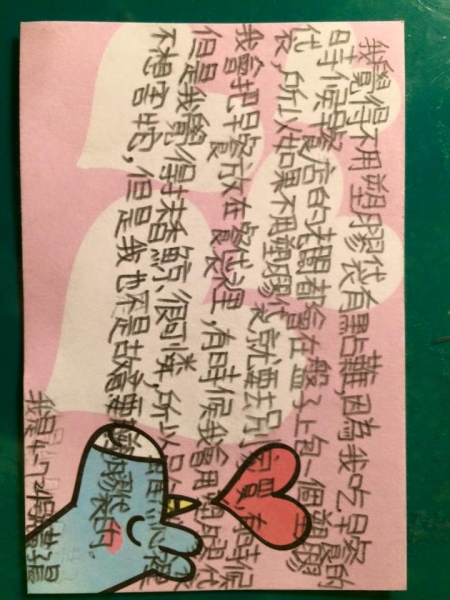 我覺得不用塑膠袋有點難，因為我吃早餐的
時候早餐店的老闆都會在盤子上包一個塑膠
袋，所以如果不用塑膠袋就要去別家買，有時候
我會把早餐放在餐袋裡，有時候我會用塑膠袋
但是我覺得抹香鯨很可憐，所以
不想害牠，但是我也不是故意要 塑膠袋的。
我是